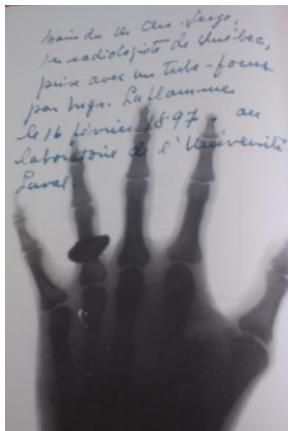 main du Dr Chs. Verge,
1er radiologiste de Québec,
prise avec un tube-focus
par Mgr. Laflamme
le 16 février 1897 au
laboratoire de l'Université
Laval.